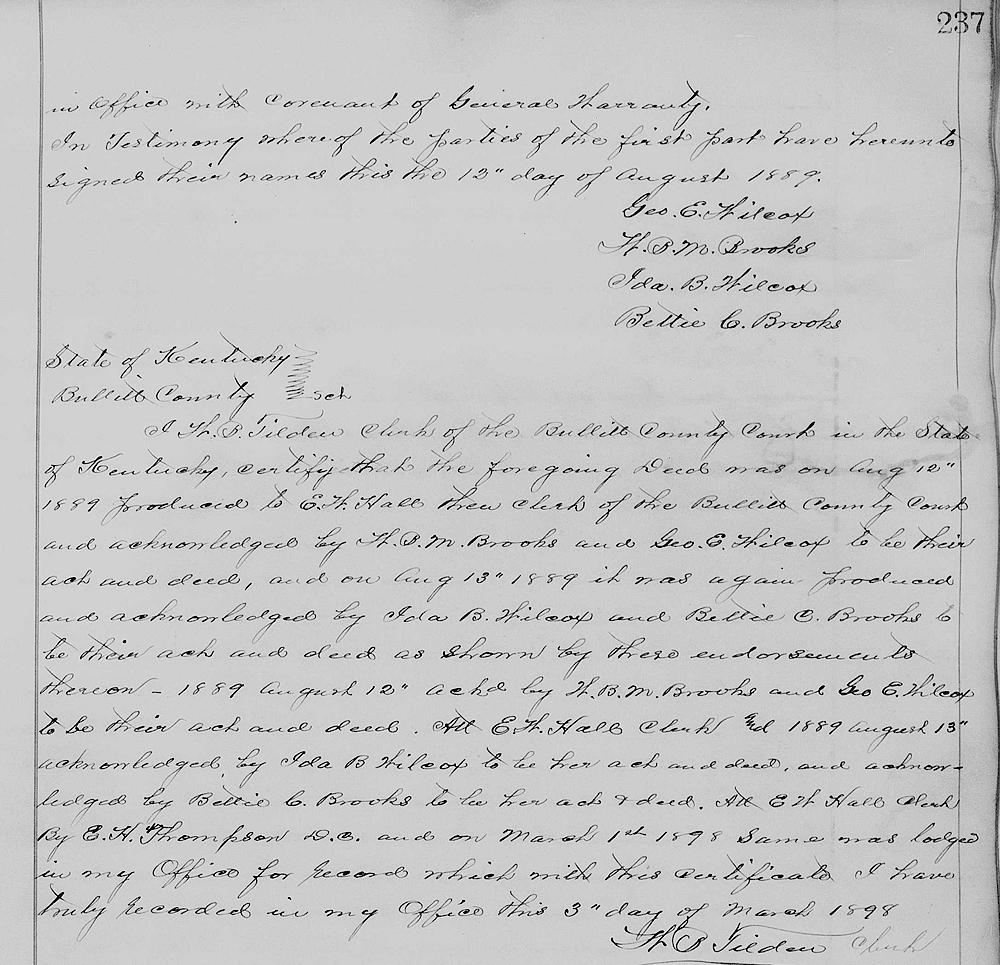 237
in Office with Covenant of General Warranty.
In Testimony whereof the parties of the first part have hereunto
signed their names this the 12" day of August 1889.
Geo. E. Wilcox
W. B. M. Brooks
Ida. B. Wilcox
Bettie C. Brooks
State of Kentucky
Bullitt County Sct
I W. B. Tilden Clerk of the Bullitt County Court in the State
of Kentucky, certify that the foregoing Deed was on Aug 12"
1889 produced to E. W. Hall then Clerk of the Bullitt County Court
and acknowledged by W. B. M. Brooks and Geo. E. Wilcox to be their
act and deed, and on Aug 13" 1889 it was again produced
and acknowledged by Ida B. Wilcox and Bettie C. Brooks to
be their act and deed as shown by these endorsements
thereon - 1889 August 12" ackd by W. B. M. Brooks and Geo E. Wilcox
to be their act and deed. Att E. W. Hall Clerk 1889 August 13"
acknowledged by Ida B Wilcox to be her act and deed, and acknow-
ledged by Bettie C. Brooks to be her act & deed. Att E W Hall Clerk
By E. H. Thompson D.C. and on March 1st 1898 same was lodged
in my Office for record which with this certificate I have
truly recorded in my Office this 3" day of March 1898
W. B Tilden Clerk